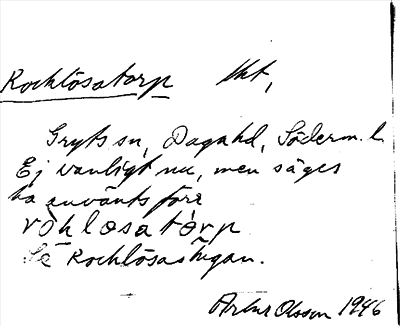 Rocklösatorp Ukt,
Gryts sn, Daga hd, Söderm. l.
Ej vanligt nu, men säges
ha använts förr
rò̀klosatórp
Se Rocklösastugan.
Artur Olsson 1946